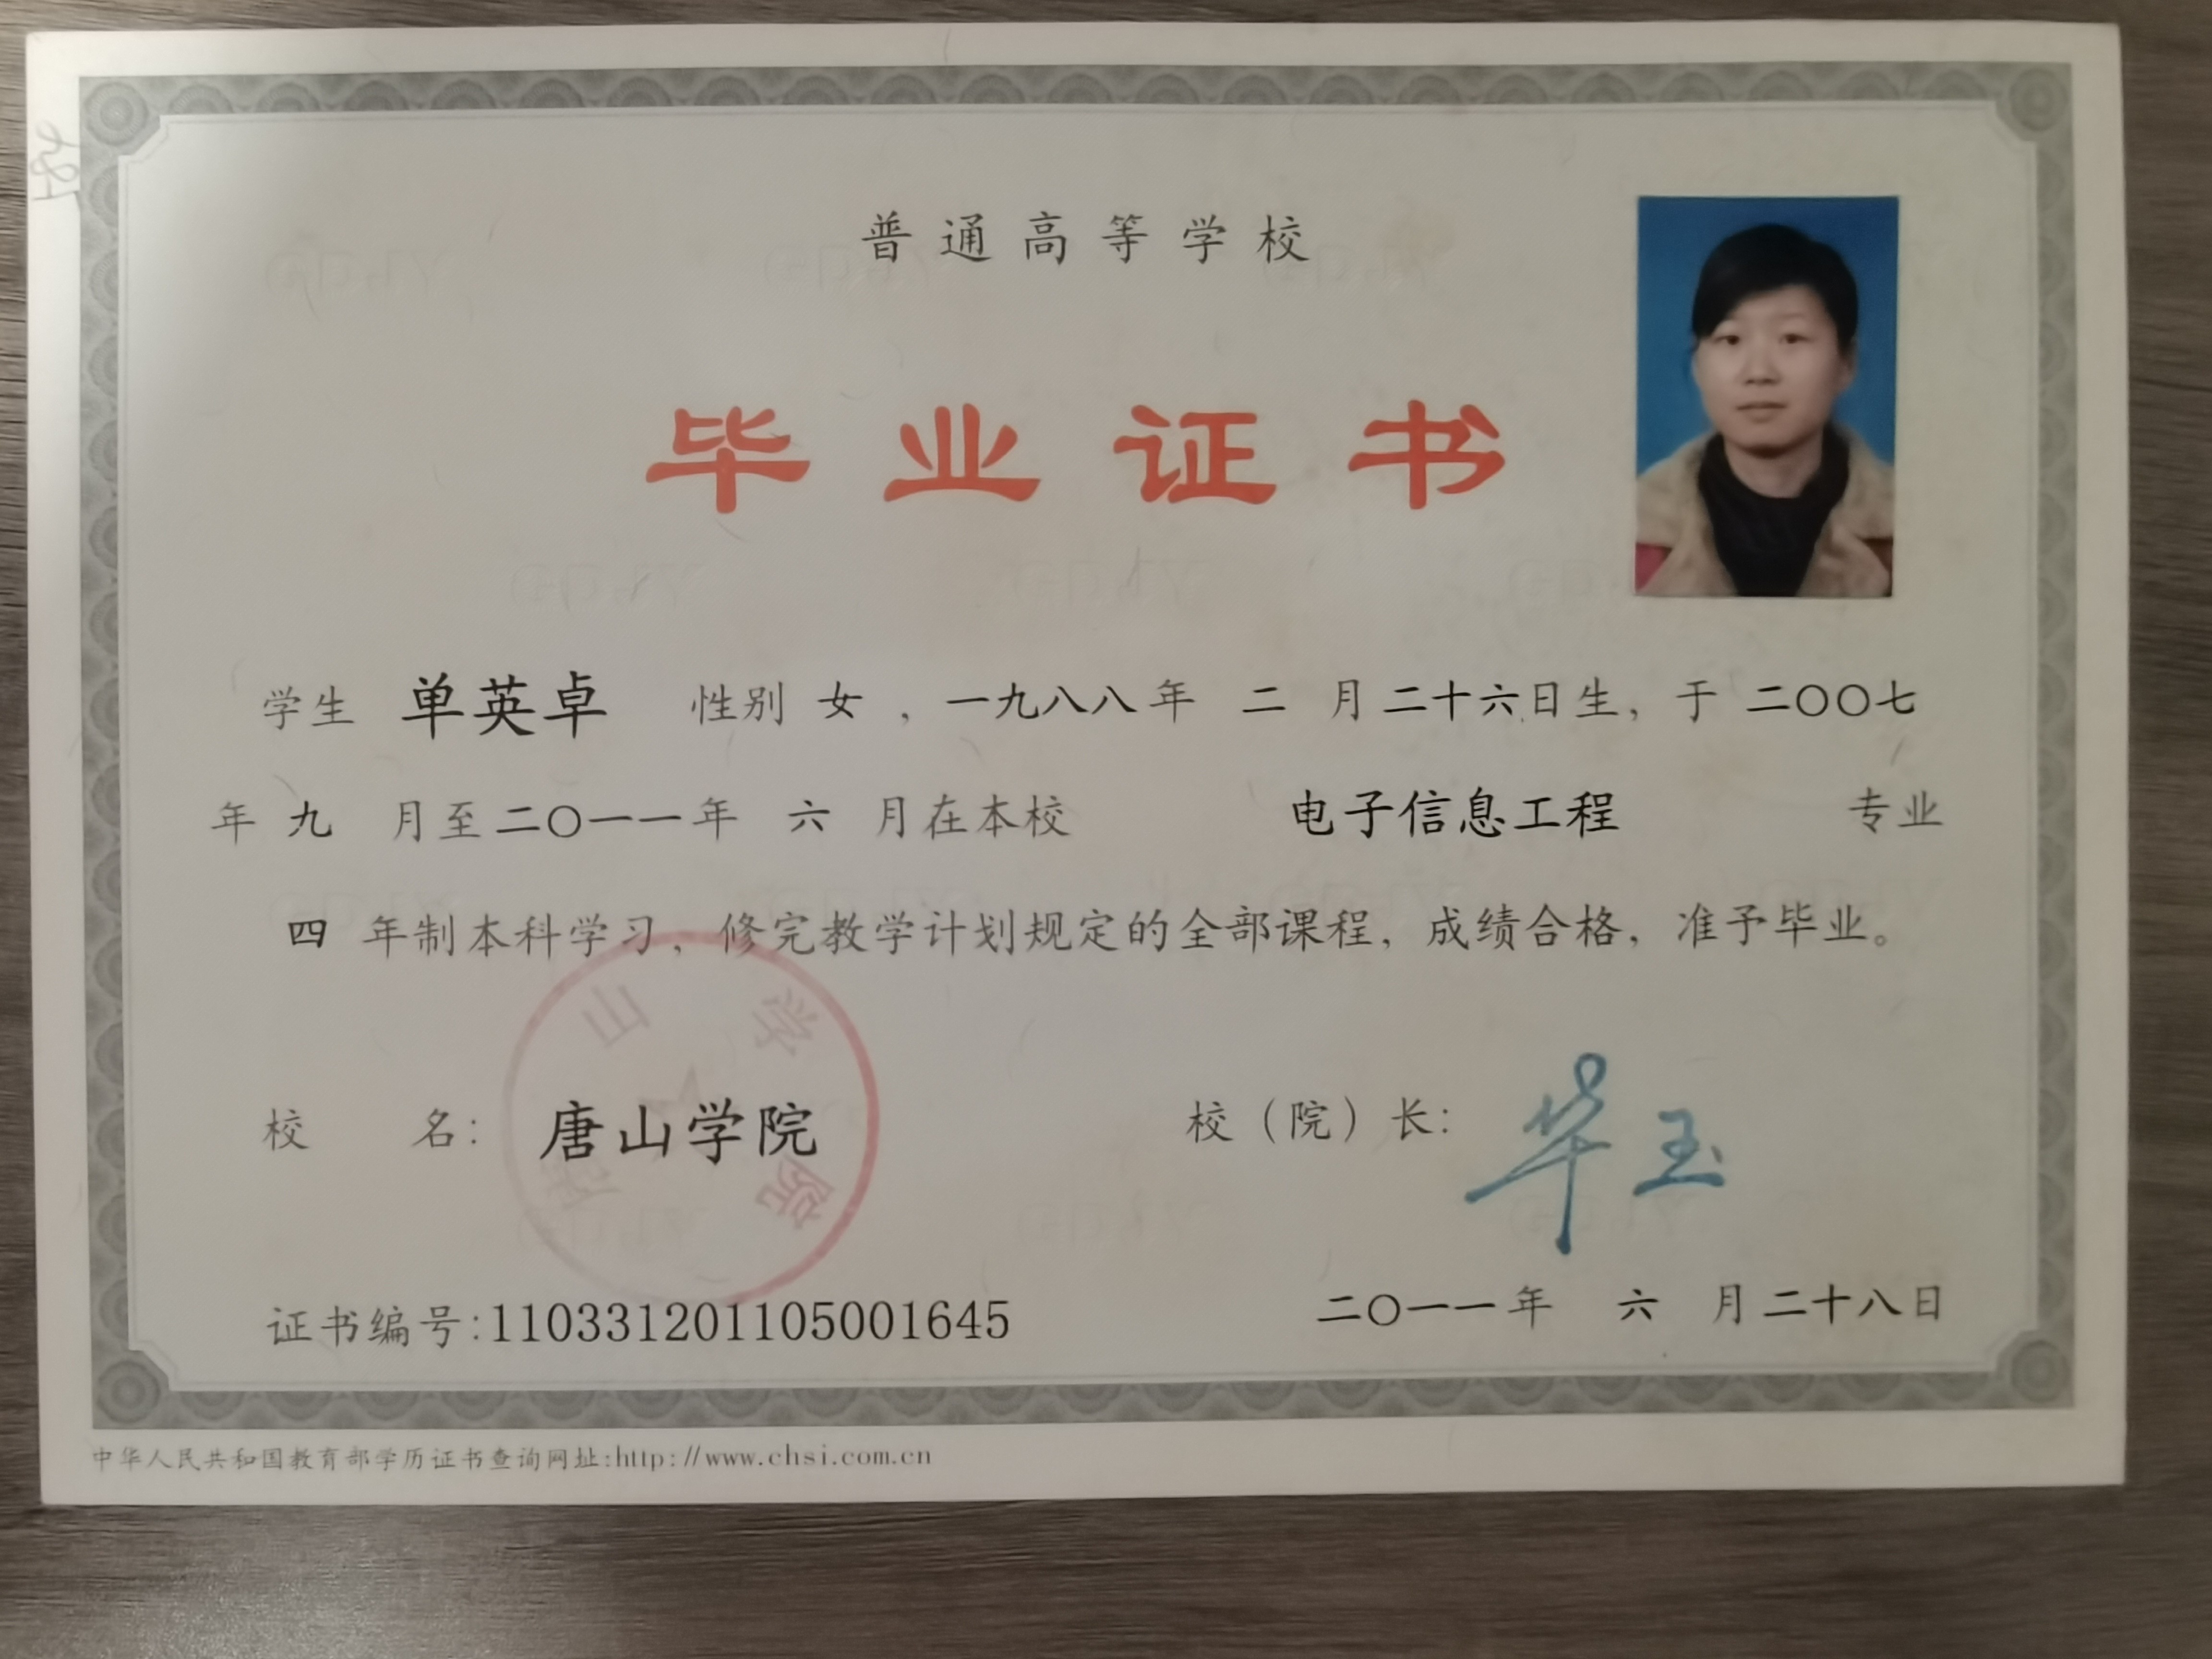 普通高等学校
毕业证书
学生 单英卓 性别 女 , 一九八八年 二 月二十六日生, 于 二〇〇七
年 九 月至二〇一一年 六 月在本校 电子信息工程 专业
四 年制本科学习, 修完教学计划规定的全部课程, 成绩合格, 准予毕业。
校 名: 唐山学院
校（院）长: 华玉
证书编号:110331201105001645
二〇一一年 六 月二十八日
中华人民共和国教育部学历证书查询网址:http://www.chsi.com.cn